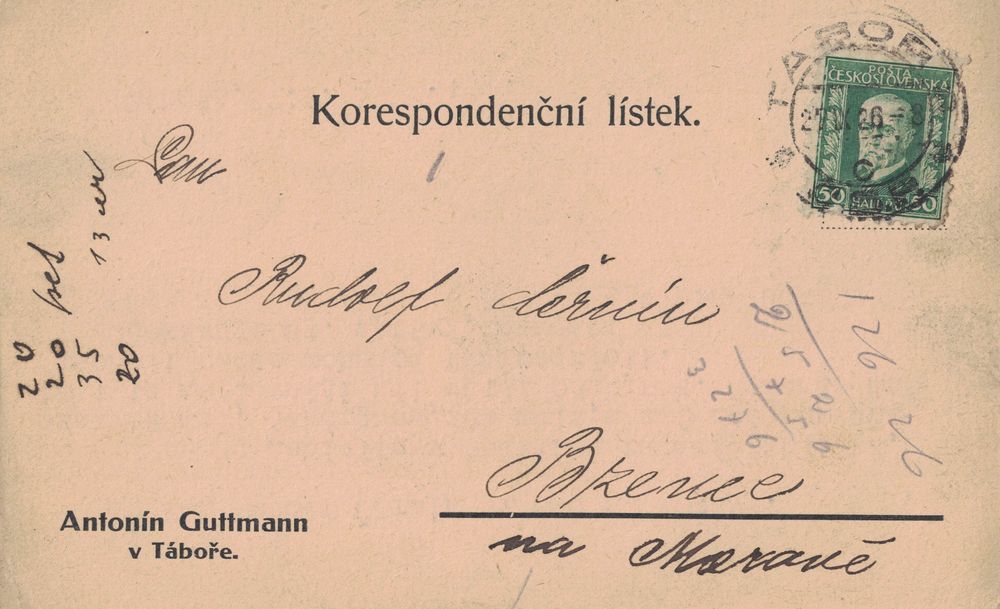 Korespondenční lístek.
TÁBOR
POŠTA
ČESKOSLOVENSKÁ
50 HALÉŘŮ 50
Pan
Rudolf Černín
Bzenec
na Moravě
Antonín Guttmann
v Táboře.
20
20
35
20
13
126